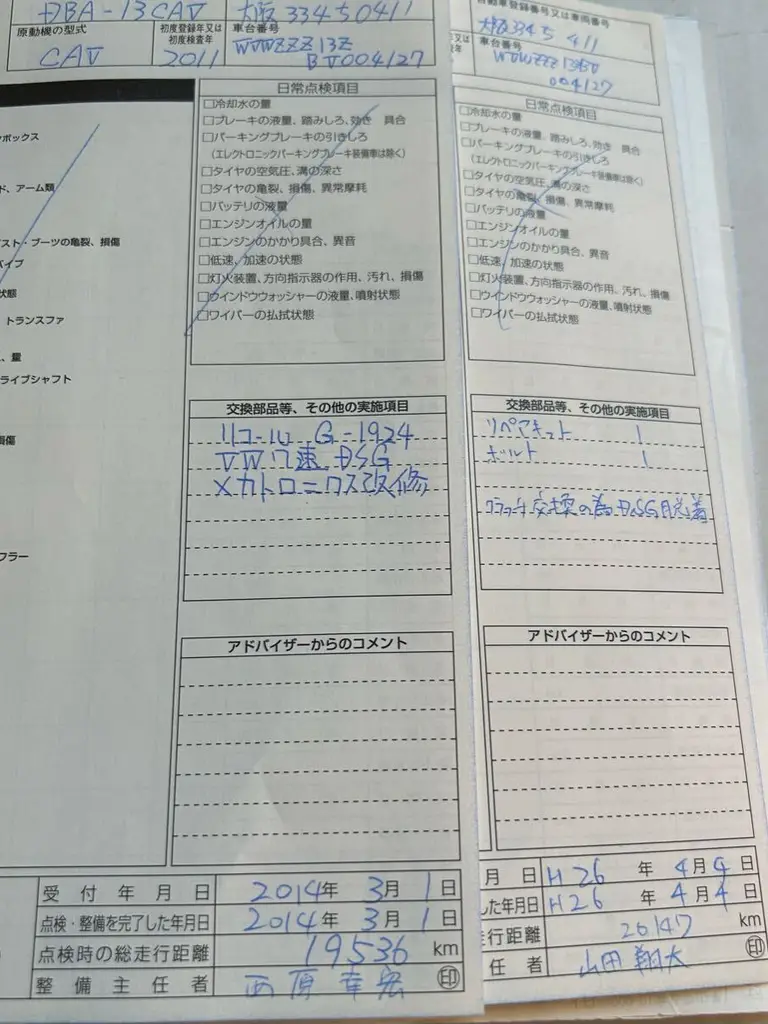 DBA-13CAV
大阪 334 5 0411
原動機の型式
初度登録年又は
初度検査年
車台番号
CAV
2011
WVWZZZ13Z
BV004127
日常点検項目
□冷却水の量
□ブレーキの液量、踏みしろ、効き 具合
□パーキングブレーキの引きしろ
(エレクトロニックパーキングブレーキ装備車は除く)
□タイヤの空気圧、溝の深さ
□タイヤの亀裂、損傷、異常摩耗
□バッテリの液量
□エンジンオイルの量
□エンジンのかかり具合、異音
□低速、加速の状態
□灯火装置、方向指示器の作用、汚れ、損傷
□ウインドウウォッシャーの液量、噴射状態
□ワイパーの払拭状態
ボックス
ド、アーム類
スト・ブーツの亀裂、損傷
パイプ
状態
トランスファ
、量
ライブシャフト
損傷
フラー
交換部品等、その他の実施項目
リコール G-1924
VW 7速 DSG
メカトロニクス改修
アドバイザーからのコメント
受付年月日 2014年 3月 1日
点検・整備を完了した年月日 2014年 3月 1日
点検時の総走行距離 19536 km
整備主任者 西原 幸宏 印
自動車登録番号又は車両番号
大阪 334 5 411
車台番号
004127
日常点検項目
□冷却水の量
□ブレーキの液量、踏みしろ、効き 具合
□パーキングブレーキの引きしろ
(エレクトロニックパーキングブレーキ装備車は除く)
□タイヤの空気圧、溝の深さ
□タイヤの亀裂、損傷、異常摩耗
□バッテリの液量
□エンジンオイルの量
□エンジンのかかり具合、異音
□低速、加速の状態
□灯火装置、方向指示器の作用、汚れ、損傷
□ウインドウウォッシャーの液量、噴射状態
□ワイパーの払拭状態
交換部品等、その他の実施項目
リペアキット 1
ボルト 1
クラッチ交換の為、DSG脱着
アドバイザーからのコメント
月日 H26 年 4月4日
した年月日 H26 年 4月4日
走行距離 26147 km
任者 山田 翔大 印